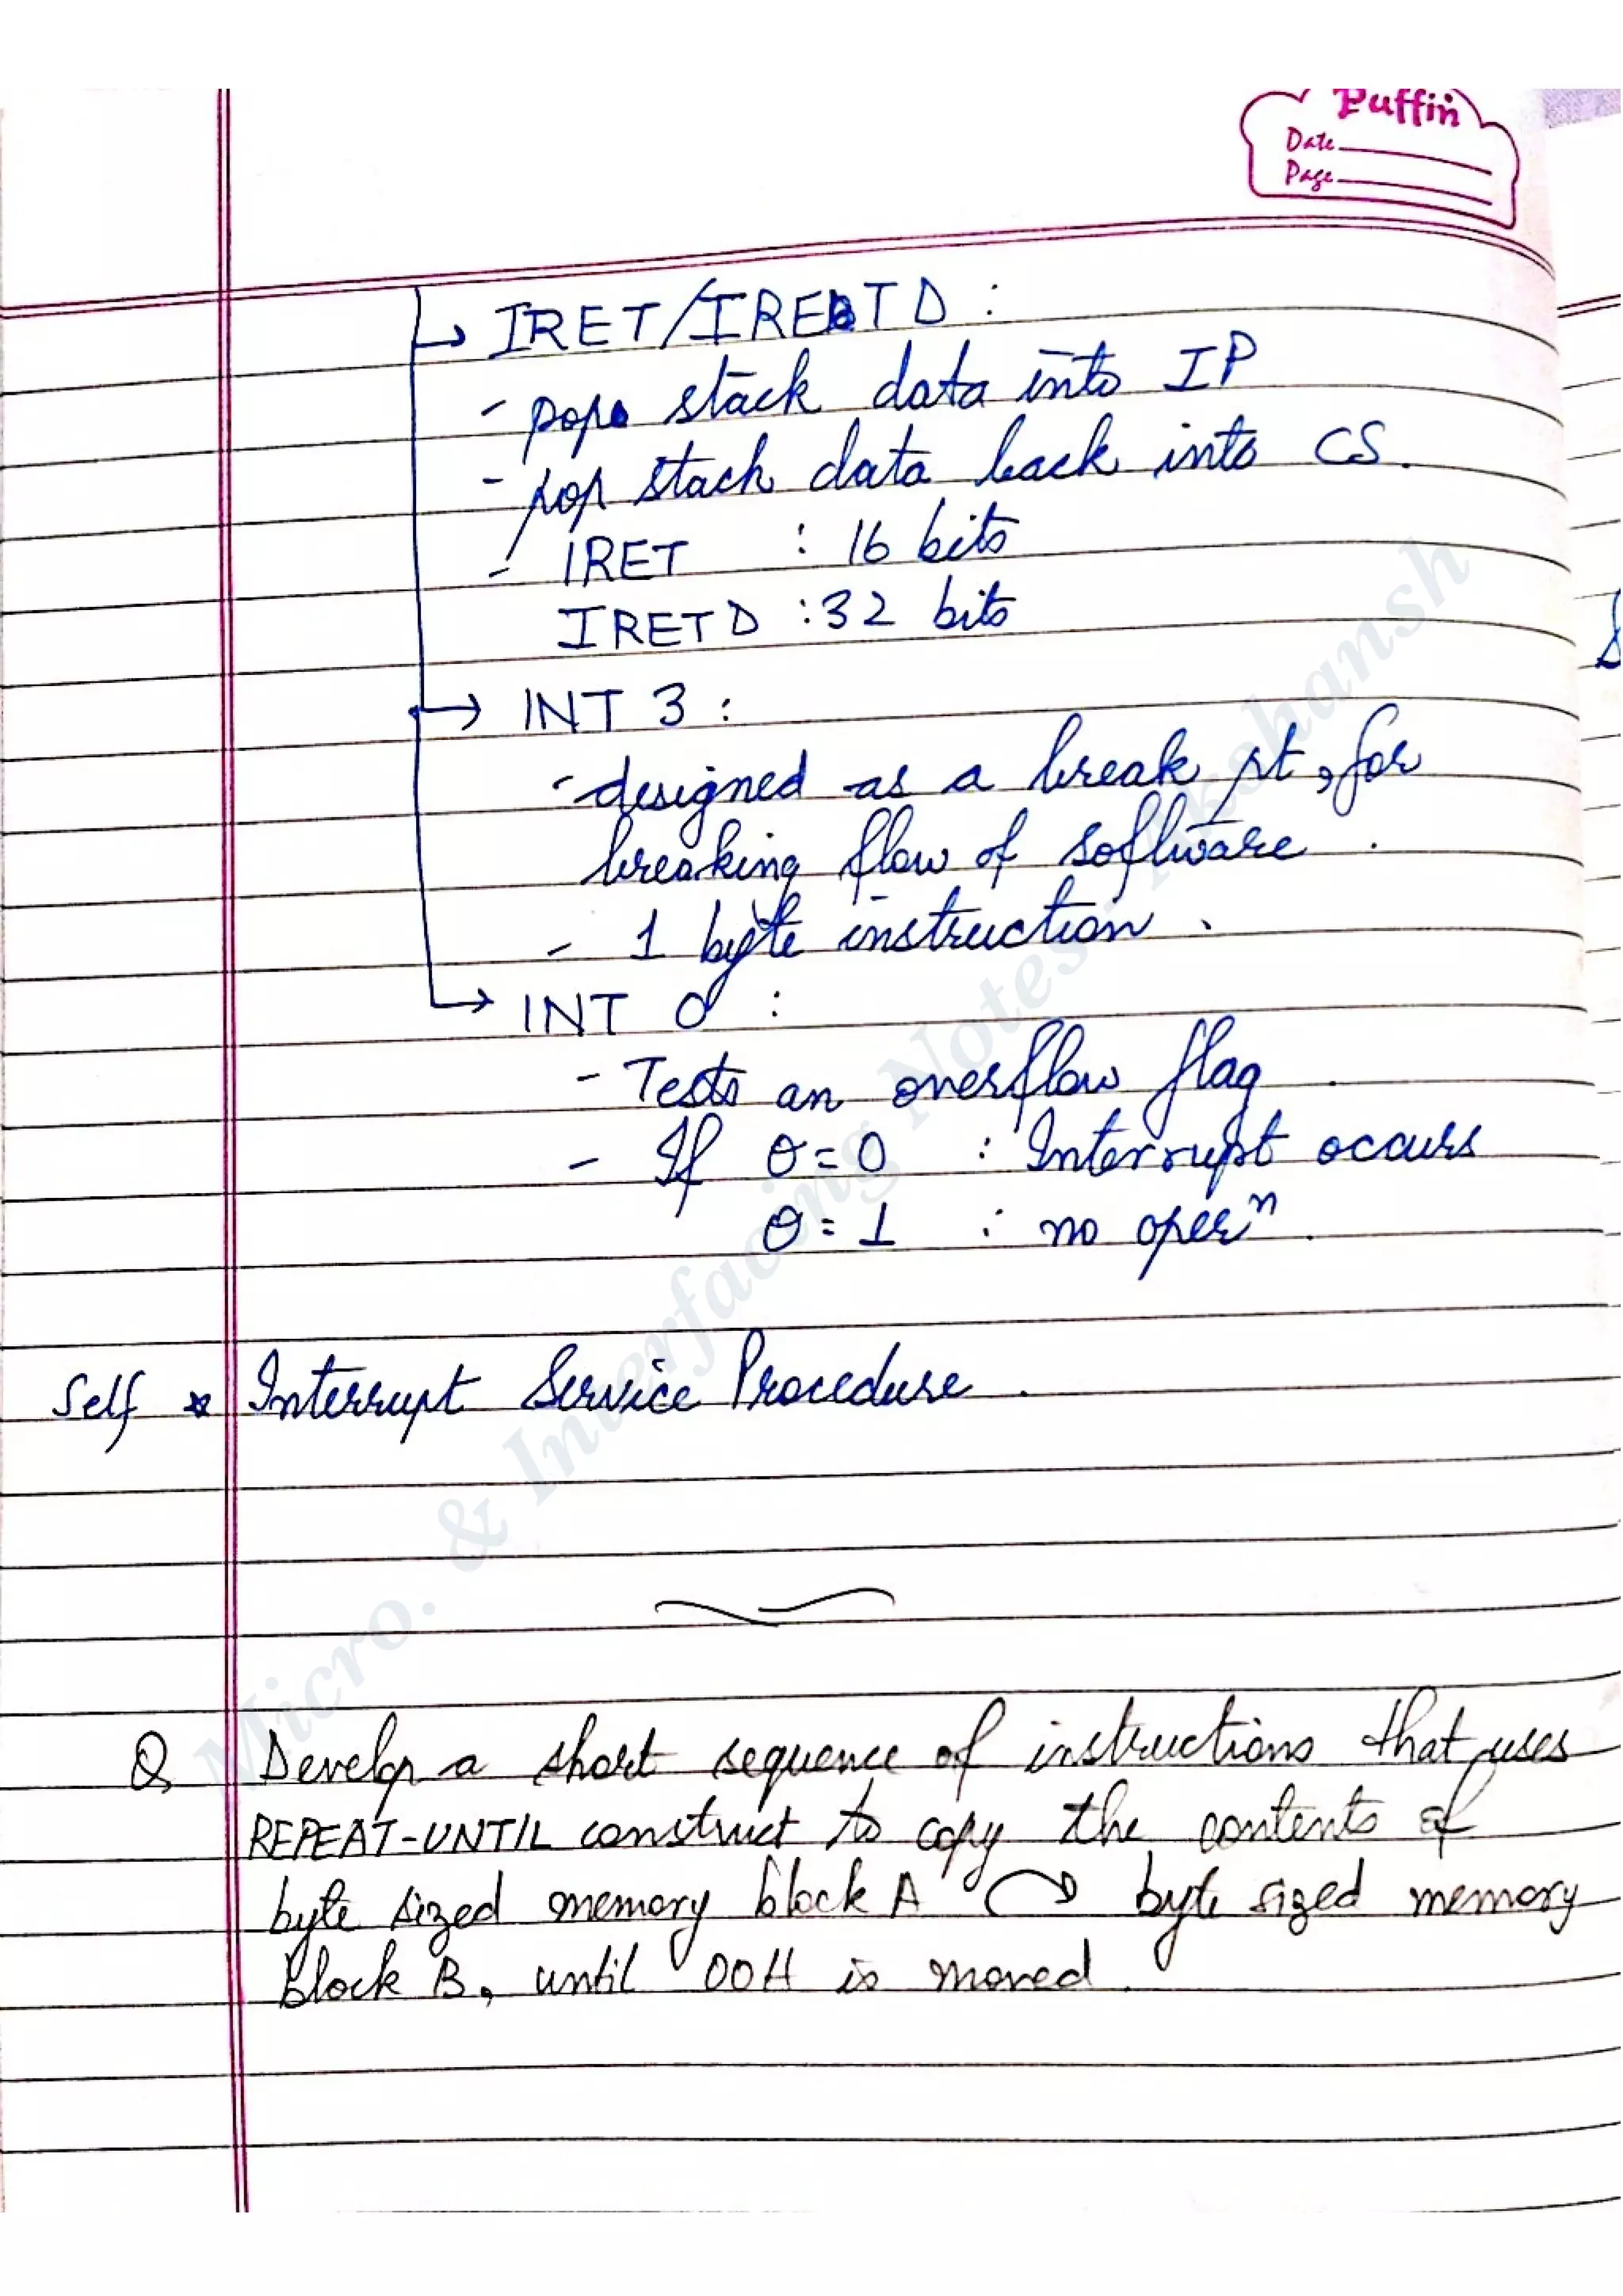 Puffin
Date
Page
↳ IRET/IRETD :
- pop stack data into IP
- pop stack data back into CS.
- IRET : 16 bits
IRETD : 32 bits
→ INT 3 :
- designed as a break pt, for
breaking flow of software.
- 1 byte instruction.
↳ INT O :
- Tests an overflow flag
- If O=0 : Interrupt occurs
O=1 : no operⁿ.
Self * Interrupt Service Procedure.
Q Develop a short sequence of instructions that uses
REPEAT-UNTIL construct to copy the contents of
byte sized memory block A ↷ byte sized memory
block B, until 00H is moved.
Micro. & Inerfacing Notes Akshansh